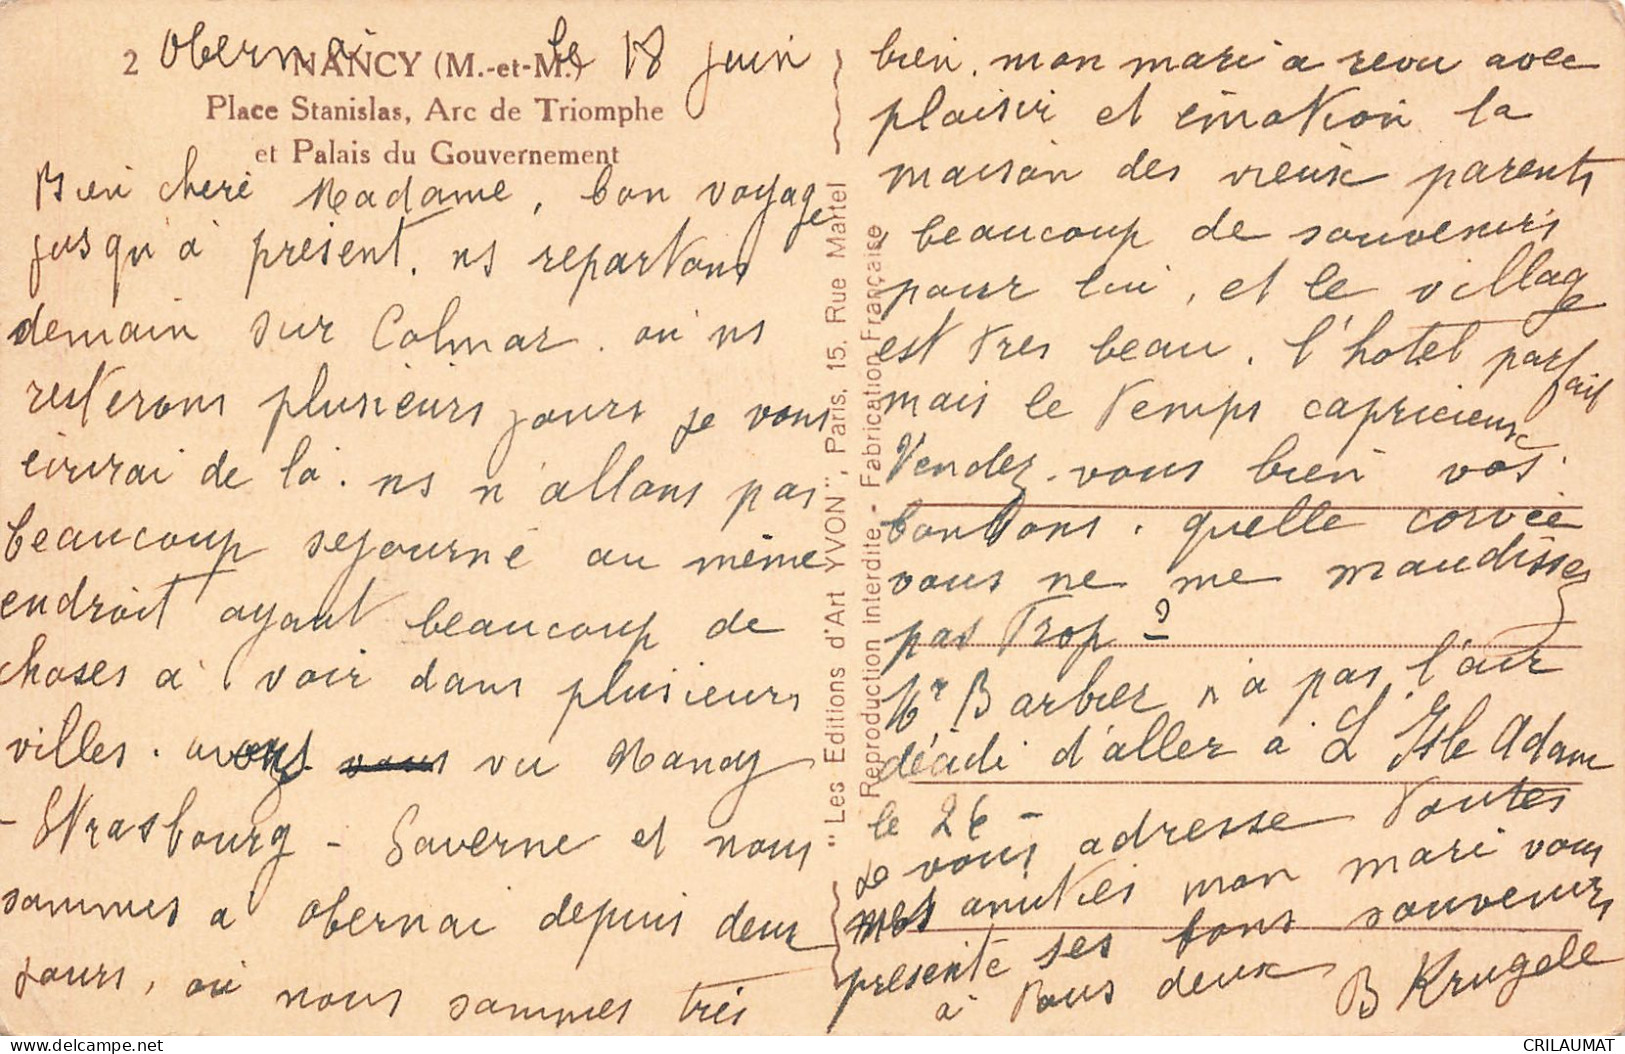 Obernai le 18 juin
2 NANCY (M.-et-M.)
Place Stanislas, Arc de Triomphe
et Palais du Gouvernement
Bien cheré Madame, bon voyage
jusqu'à présent. ns repartons
demain sur Colmar. ou ns
resterons plusieurs jours je vous
écrirai de là. ns n'allons pas
beaucoup sejourné au même
endroit ayant beaucoup de
choses à voir dans plusieurs
villes. avons vu Nancy
- Strasbourg - Saverne et nous
sommes à Obernai depuis deux
jours, où nous sommes très
"Les Editions d'Art YVON", Paris, 15, Rue Martel
Reproduction Interdite - Fabrication Française
bien. mon mari a revu avec
plaisir et émotion la
maison des vieux parents
beaucoup de souvenirs
pour lui, et le village
est très beau. l'hotel parfait
mais le temps capricieux
Vendez-vous bien vos
bonbons. quelle corvée
vous ne me maudissez
pas trop ?
Mr Barbier n'a pas l'air
décidi d'aller à L'Isle Adam
le 26 -
Je vous adresse toutes
mes amitiés mon mari vous
présente ses bons souvenirs
à tous deux B Krugell
CRILAUMAT